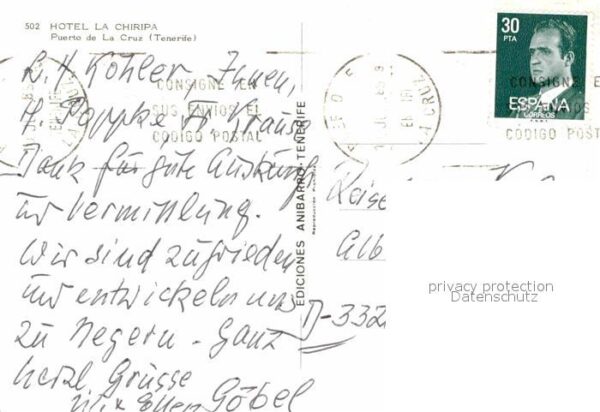 502 HOTEL LA CHIRIPA
Puerto de La Cruz (Tenerife)
L. H. Köhler, Ihnen,
H. Poppke, H. Krause
Dank für gute Auskünft
und Vermittlung.
Wir sind zufrieden
und entwickeln uns
zu Negern. Ganz
herzl. Grüsse
Göbel
CONSIGNE EN
SUS ENVIOS EL
CODIGO POSTAL
EDICIONES ANIBARRO-TENERIFE
30
PTA
ESPAÑA
CORREOS
CONSIGNE E
CODIGO POSTAL
LA CRUZ
Reise
Alb
D-332
privacy protection
Datenschutz